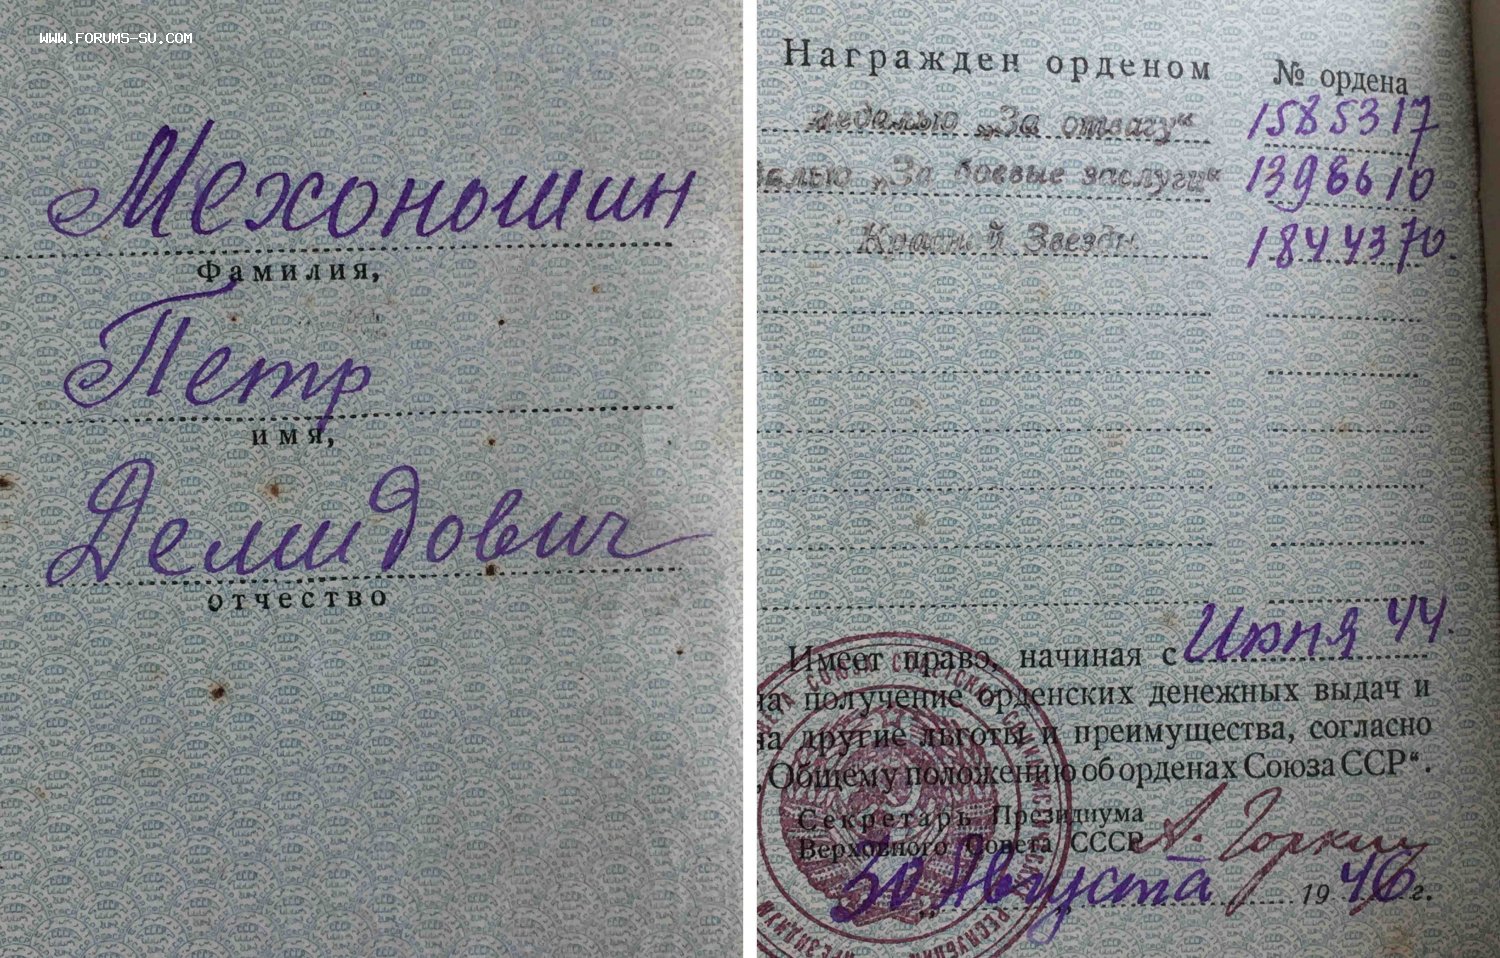 WWW.FORUMS-SU.COM
Мехоношин
Фамилия,
Петр
имя,
Демидович
отчество
Награжден орденом № ордена
медалью „За отвагу“ 1585317
далью „За боевые заслуги“ 1398610
Красн й Звезды 1844370
Имеет право, начиная с Июня 44.
на получение орденских денежных выдач и
на другие льготы и преимущества, согласно
„Общему положению об орденах Союза ССР“.
Секретарь Президиума
Верховного Совета СССР А. Горкин
„30 Августа 1946 г.